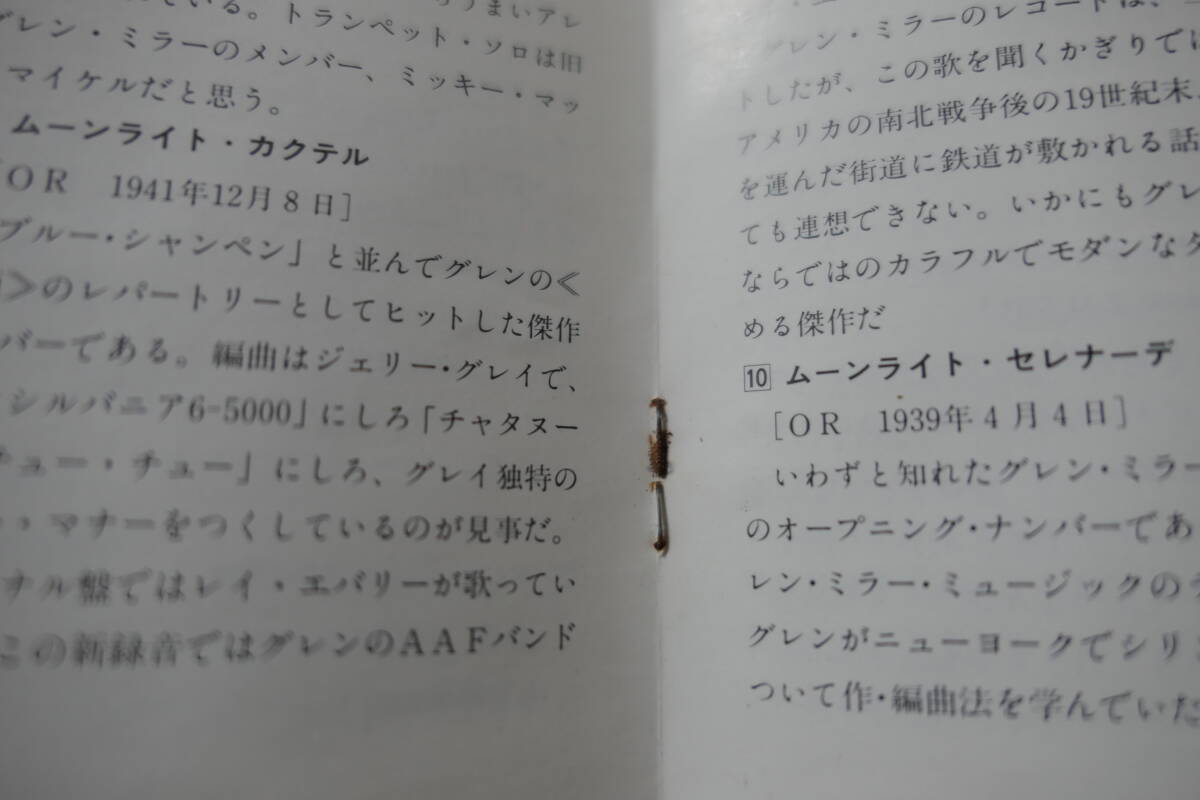 ている。トランペット・ソロは旧
グレン・ミラーのメンバー、ミッキー・マッ
マイケルだと思う。
ムーンライト・カクテル
[OR 1941年12月8日]
ブルー・シャンペン」と並んでグレンの≪
≫のレパートリーとしてヒットした傑作
バーである。編曲はジェリー・グレイで、
シルバニア6-5000」にしろ「チャタヌー
チュー・チュー」にしろ、グレイ独特の
・マナーをつくしているのが見事だ。
ナル盤ではレイ・エバリーが歌ってい
この新録音ではグレンのAAFバンド
グレン・ミラーのレコードは、
トしたが、この歌を聞くかぎりでは
アメリカの南北戦争後の19世紀末
を運んだ街道に鉄道が敷かれる話
ても連想できない。いかにもグレ
ならではのカラフルでモダンな
める傑作だ
10 ムーンライト・セレナーデ
[OR 1939年4月4日]
いわずと知れたグレン・ミラー
のオープニング・ナンバーであ
レン・ミラー・ミュージックの
グレンがニューヨークでシリ
ついて作・編曲法を学んでいた